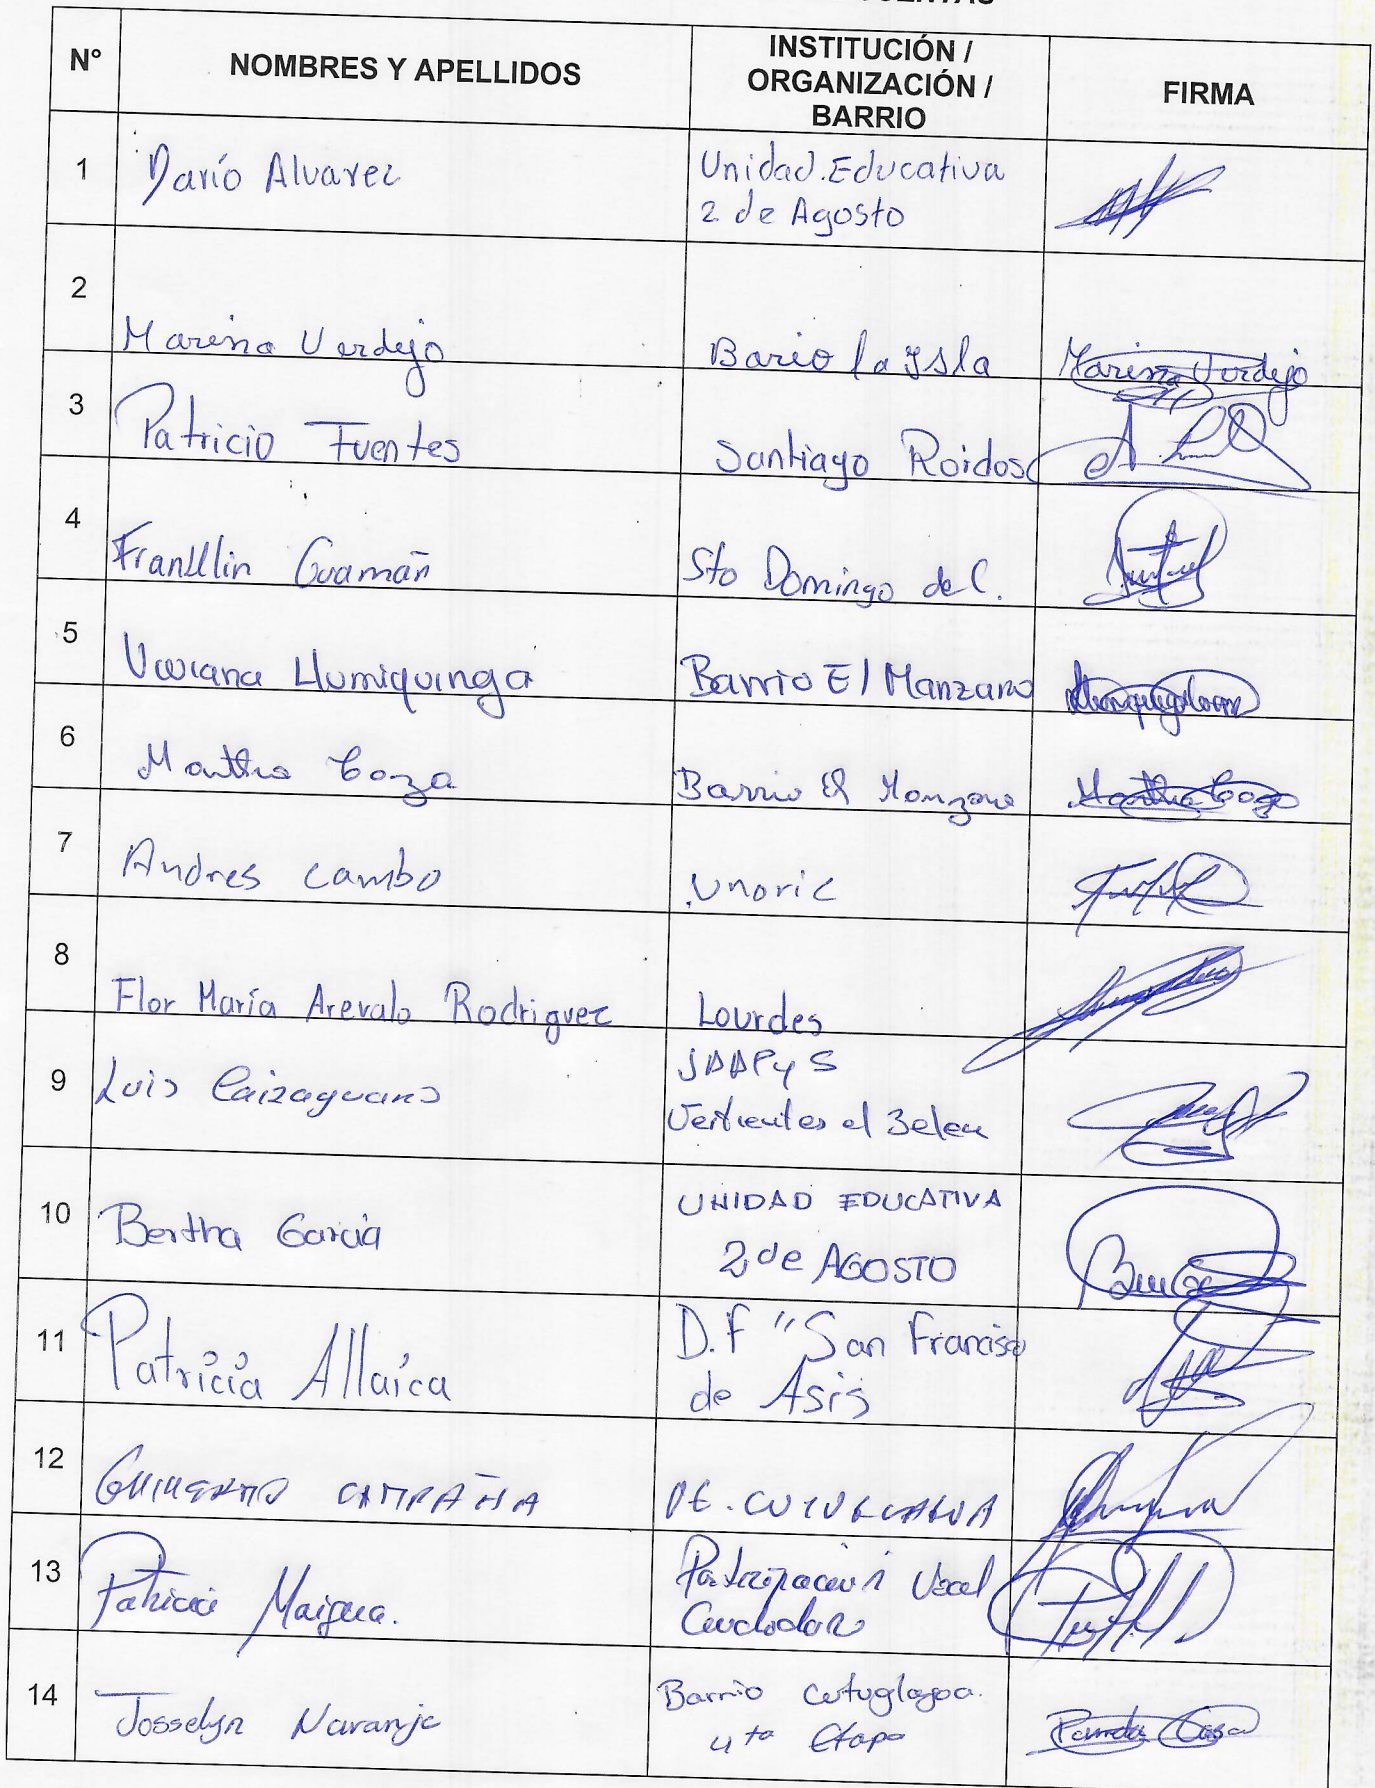 N°
NOMBRES Y APELLIDOS
INSTITUCIÓN /
ORGANIZACIÓN /
BARRIO
FIRMA
1
Darío Alvarez
Unidad Educativa
2 de Agosto
2
Marina Verdejo
Bario la Isla
Marina Verdejo
3
Patricio Fuentes
Santiago Roldos
4
Frankllin Guamañ
Sto Domingo de C.
5
Viviana Llumiquinga
Barrio El Manzano
6
Martha Coza
Barrio El Manzano
Martha Coza
7
Andres Cambo
Unoric
8
Flor María Arevalo Rodriguez
Lourdes
9
Luis Caizaguano
JAAPyS
Vertientes el Belen
10
Bertha García
UNIDAD EDUCATIVA
2 de AGOSTO
11
Patricia Allaica
D.F "San Francisco
de Asis
12
GUILLERMO CAMPAÑA
CUTUGLAGUA
13
Patricia Maigua.
Participación
Ciudadana
14
Josselyn Naranjo
Barrio Cutuglagoa.
4ta Etapa